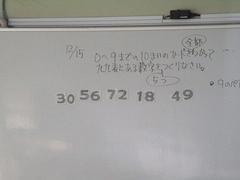 12/15
全部
0〜9までの10まいのカードをつかって
九九にある数字をつくりなさい。
5つ
30 56 72 18 49